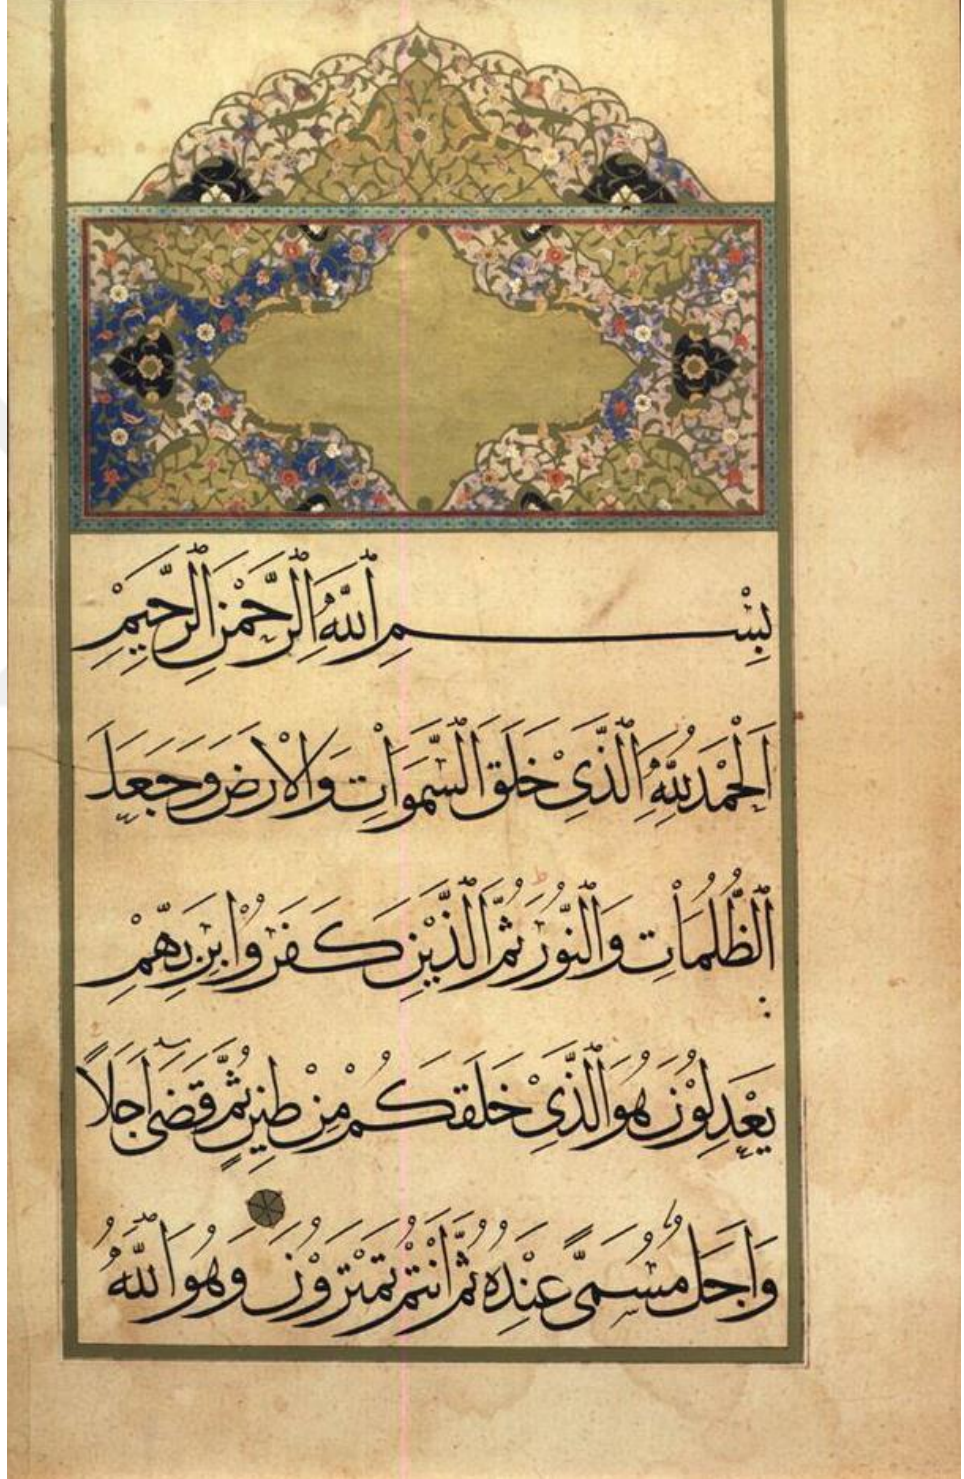 بِسْمِ اَللّٰهِ الرَّحْمٰنِ الرَّحِيمِ
اَلْحَمْدُ لِلّٰهِ الَّذِىْ خَلَقَ السَّمٰوَاتِ وَالْاَرْضَ وَجَعَلَ
الظُّلُمَاتِ وَالنُّوْرَ ثُمَّ الَّذِيْنَ كَفَرُوْا بِرَبِّهِمْ
يَعْدِلُوْنَ هُوَ الَّذِىْ خَلَقَكُمْ مِنْ طِيْنٍ ثُمَّ قَضٰٓى اَجَلًا
وَاَجَلٌ مُسَمًّى عِنْدَهُ ثُمَّ اَنْتُمْ تَمْتَرُوْنَ وَهُوَ اللّٰهُ